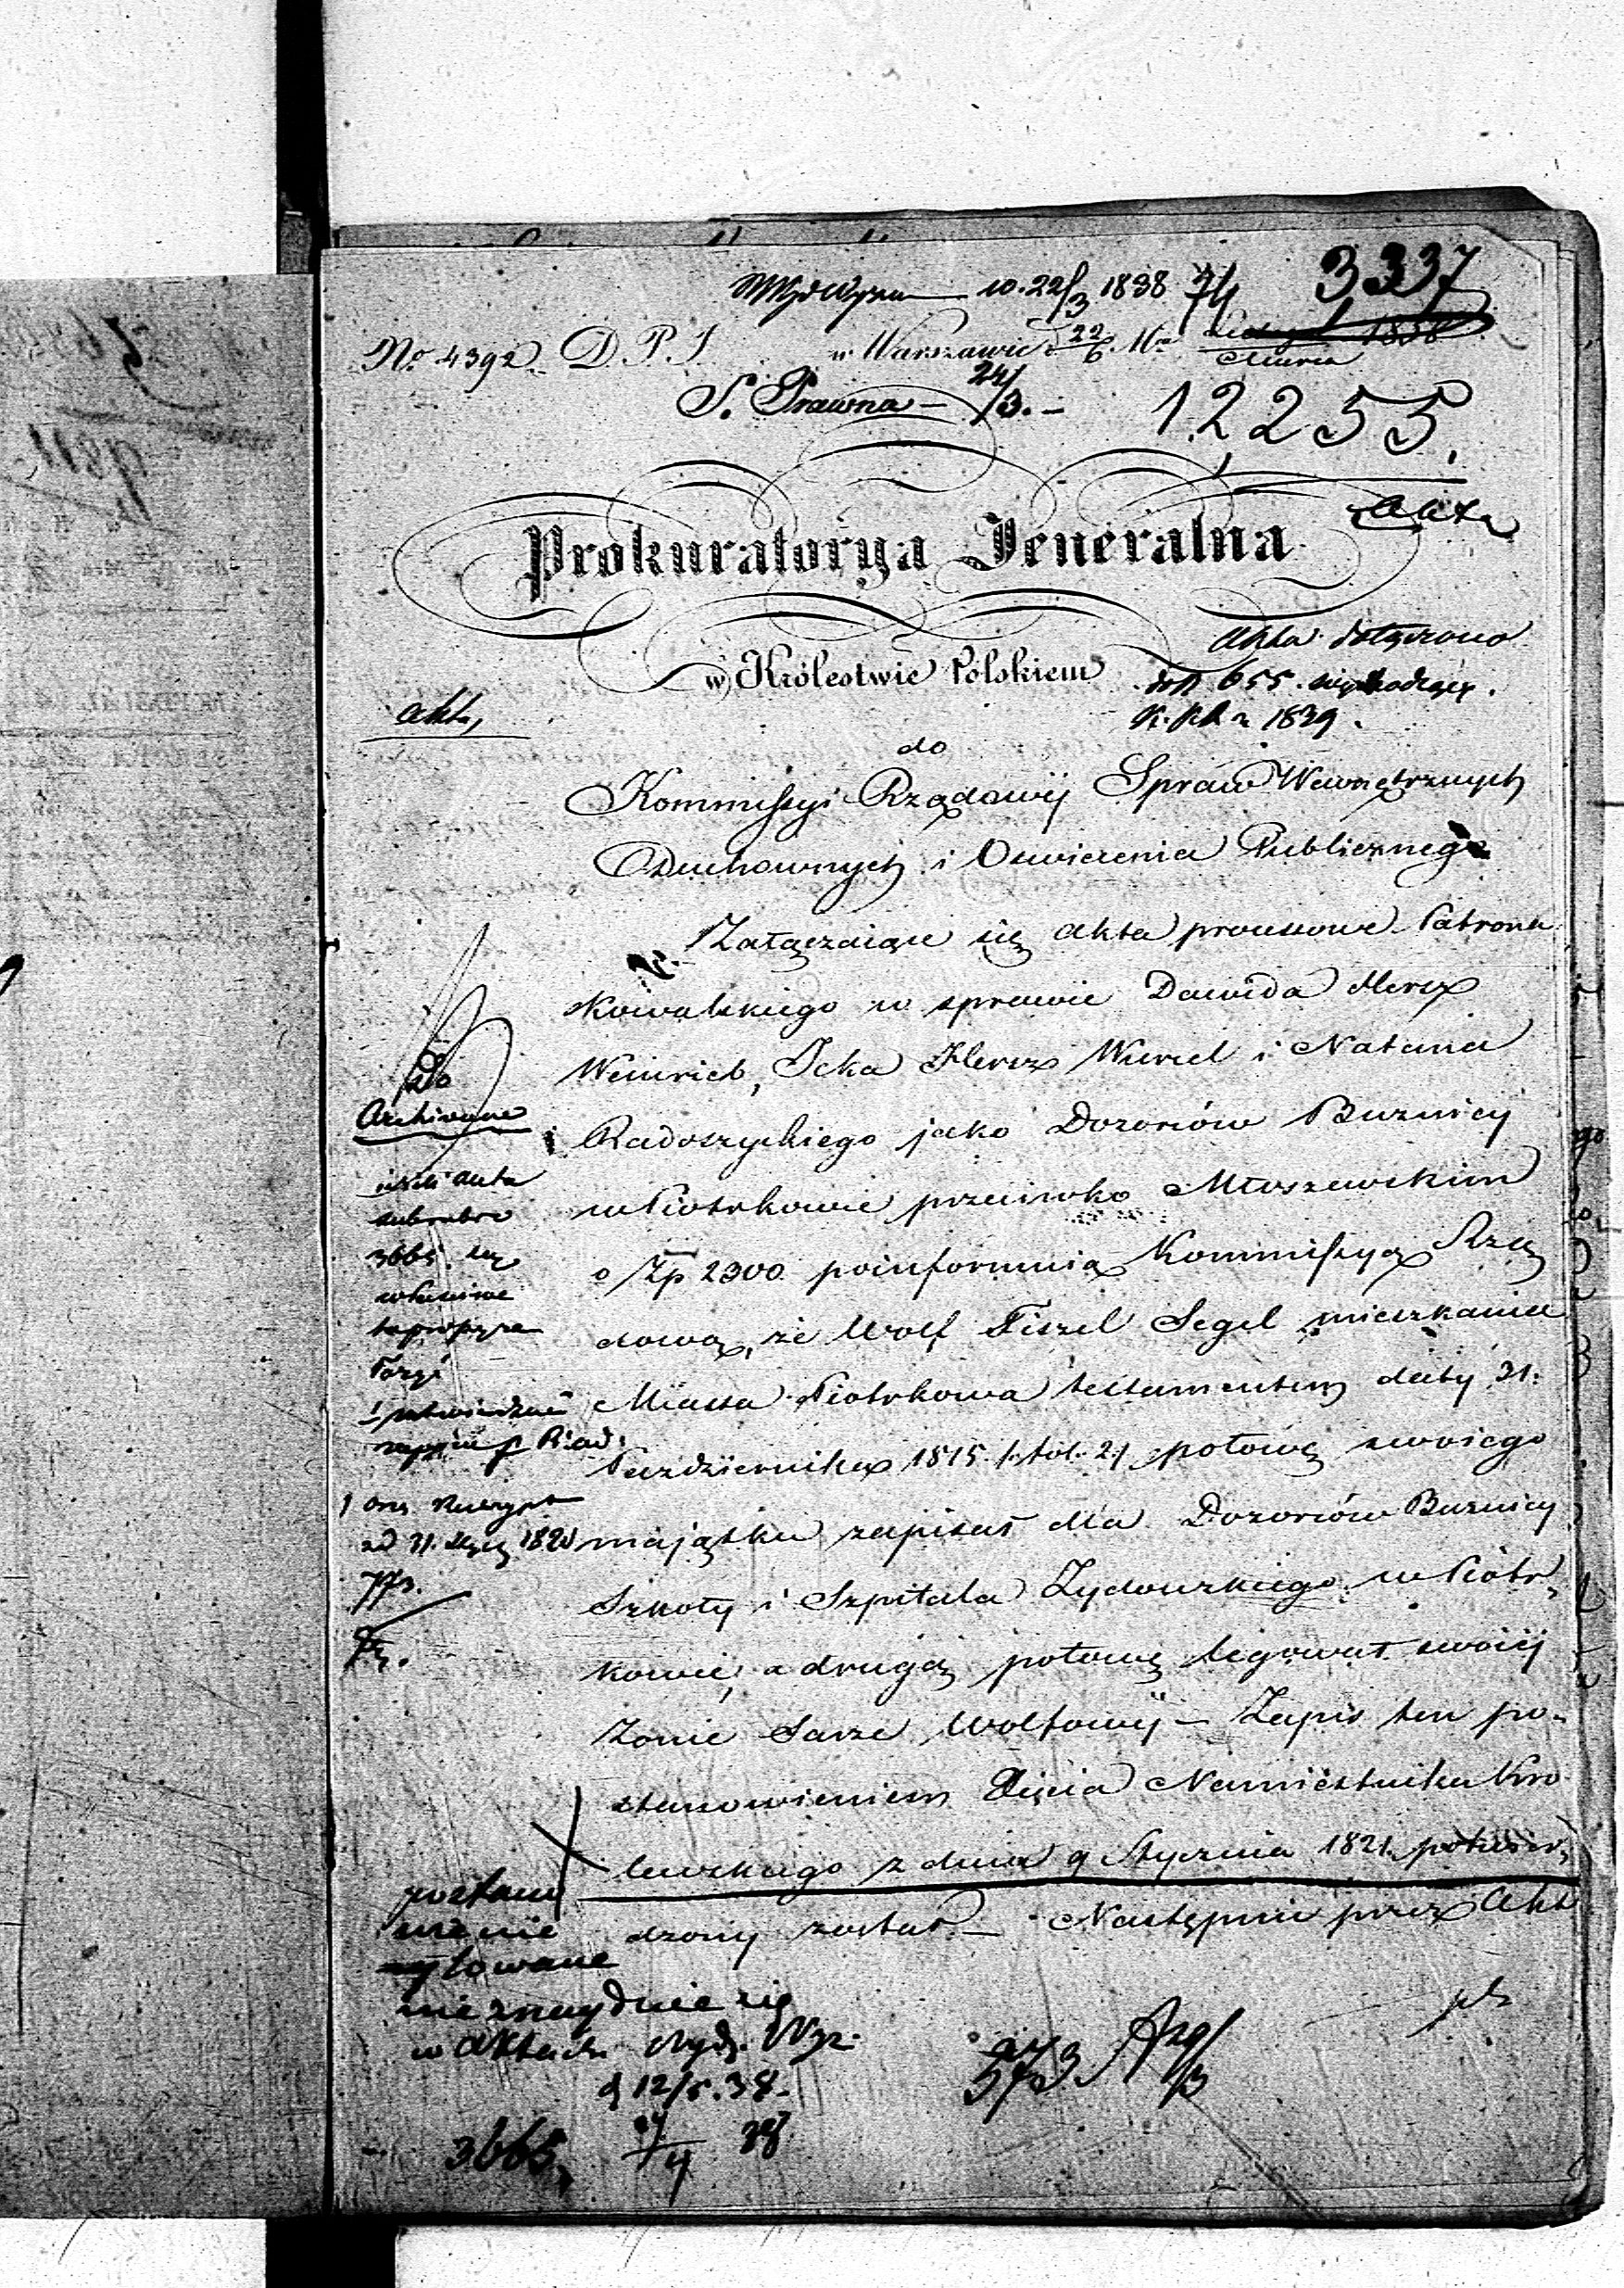 10. 22/3 1838
3337
No 4392 D.P.J. w Warszawie d 22/6 Mca
Marca
S. Prawna – 24/3. –
12255.
Akta
Prokuratorya Jeneralna
w Królestwie Polskiem
Akta dołączono
do N 655.
1839.
Akta,
do
Kommissyi Rządowéj Spraw Wewnętrznych
Duchownych i Oświecenia Publicznego
Załączaiąc się Akta processowe Patrona
Kowalskiego w sprawie Dawida Hersz
Weinrieb, Icka Hersz Wurcel i Natana
Radoszyckiego jako Dozorów Bużnicy
w Piotrkowie przeciwko Mtoszewskim
o Złp 2300 poinformuia Kommissyą Rzą
dową, że Wolf Fiszel Segel mieszkaniec
Miasta Piotrkowa testamentem daty 31.
Października 1815. r. fol. 21 połowę swoiego
majątku zapisał dla Dozorów Bużnicy
Szkoły i Szpitala Żydowskiego w Piotr,
kowie, a drugą połowę legował swoiéj
Żonie Sarze Wolfowéj – Zapis ten po-
stanowieniem Xięcia Namiestnika Kró
lewskiego z dnia 9 Stycznia 1821. potwier,
dzony został. – Następnie przez Akt
Do
Archiwum
jeżeli akta
sub nbro
3665. są
właściwe
1820
postano
wienie
cytowane
nieznayduie się
w Aktach Wydz. Wyz.
d 12/5. 38.
3665,
573